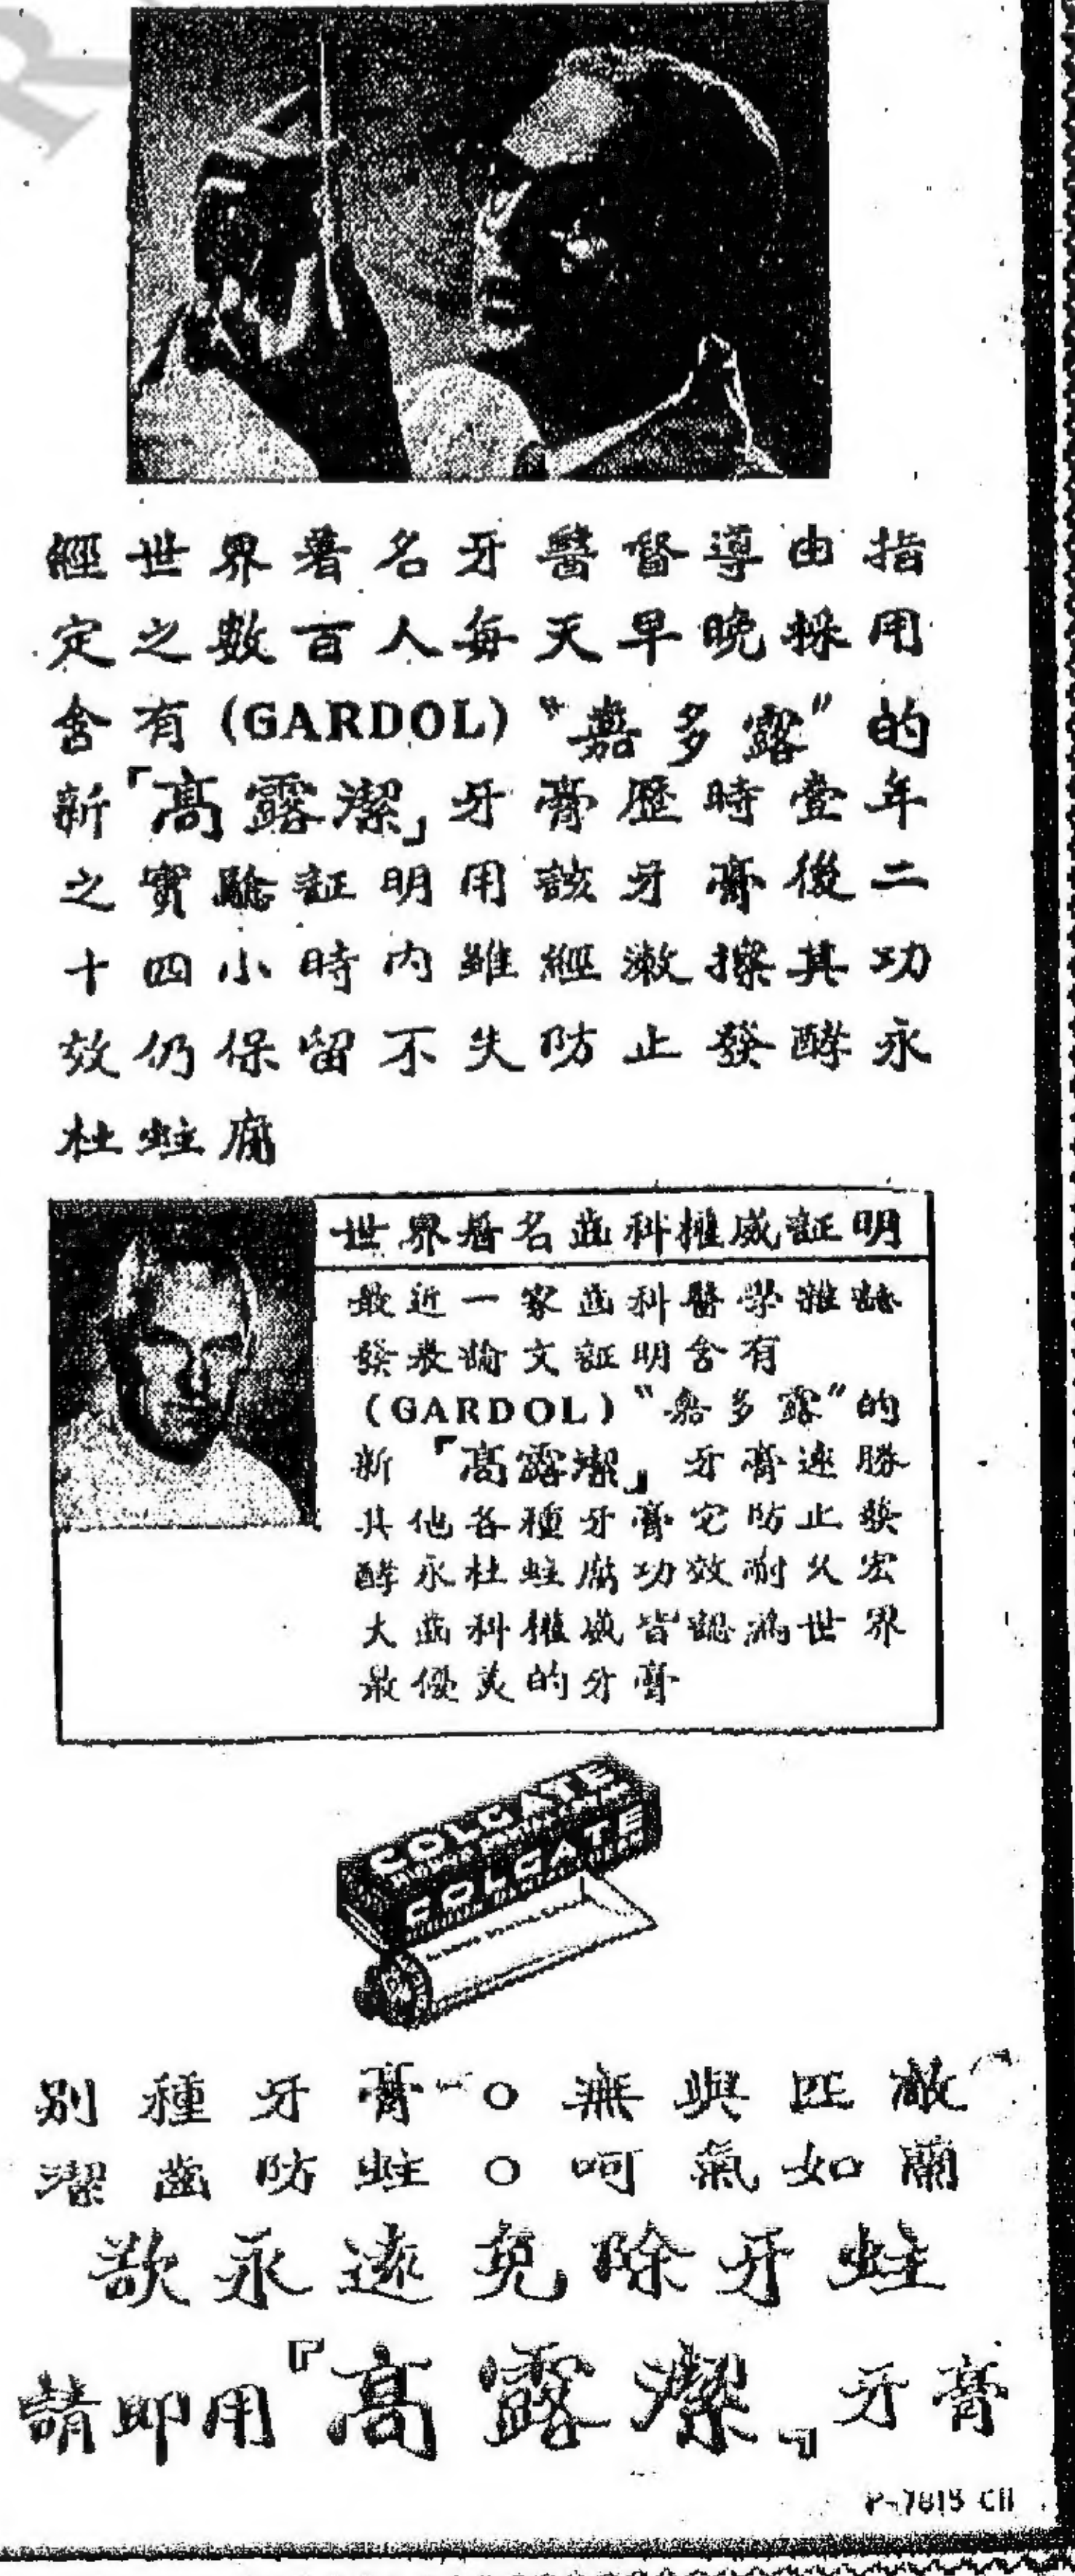 經世界著名牙醫督導由指
定之數百人每天早晚採用
含有(GARDOL)“嘉多露”的
新「高露潔」牙膏歷時壹年
之實驗証明用該牙膏後二
十四小時内雖經漱擦其功
效仍保留不失防止發酵永
杜蛀腐
世界著名齒科權威証明
最近一家齒科醫學雜誌
發表論文証明含有
(GARDOL)“嘉多露”的
新「高露潔」牙膏速勝
其他各種牙膏它防止發
酵永杜蛀腐功效耐久宏
大齒科權威皆認為世界
最優美的牙膏
COLGATE
COLGATE
別種牙膏○無與匹敵
潔齒防蛀○呵氣如蘭
欲永遠免除牙蛀
請即用『高露潔』牙膏
P-7815 CH